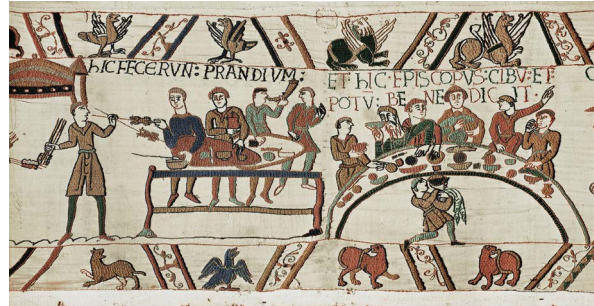 hIC FECERVN: PRANDIVM:
ET· hIC· EPISCOPVS: CIBV: ET·
POTV: BE NE DIC IT·